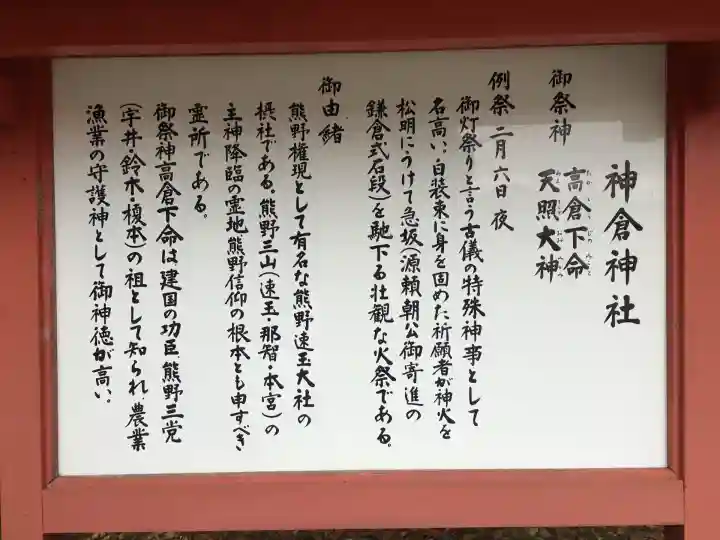 神倉神社
御祭神 高倉下命
天照大神
例祭 二月六日夜
御灯祭りと言う古儀の特殊神事として
名高い、白装束に身を固めた祈願者が神火を
松明にうけて急坂(源頼朝公御寄進の
鎌倉式石段)を馳下る壮観な火祭である。
御由緒
熊野権現として有名な熊野速玉大社の
摂社である。熊野三山(速玉・那智・本宮)の
主神降臨の霊地、熊野信仰の根本とも申すべき
霊所である。
御祭神高倉下命は、建国の功臣、熊野三党
(宇井・鈴木・榎本)の祖として知られ、農業
漁業の守護神として御神徳が高い。